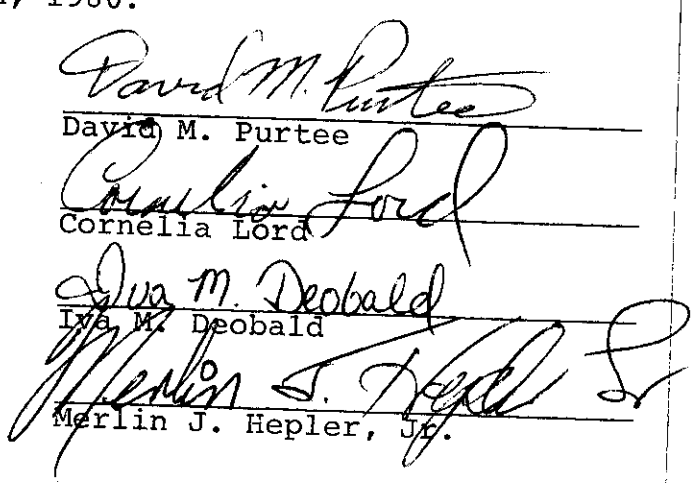 1980.
David M. Purtee
David M. Purtee
Cornelia Lord
Cornelia Lord
Iva M. Deobald
Iva M. Deobald
Merlin J. Hepler Jr
Merlin J. Hepler, Jr.